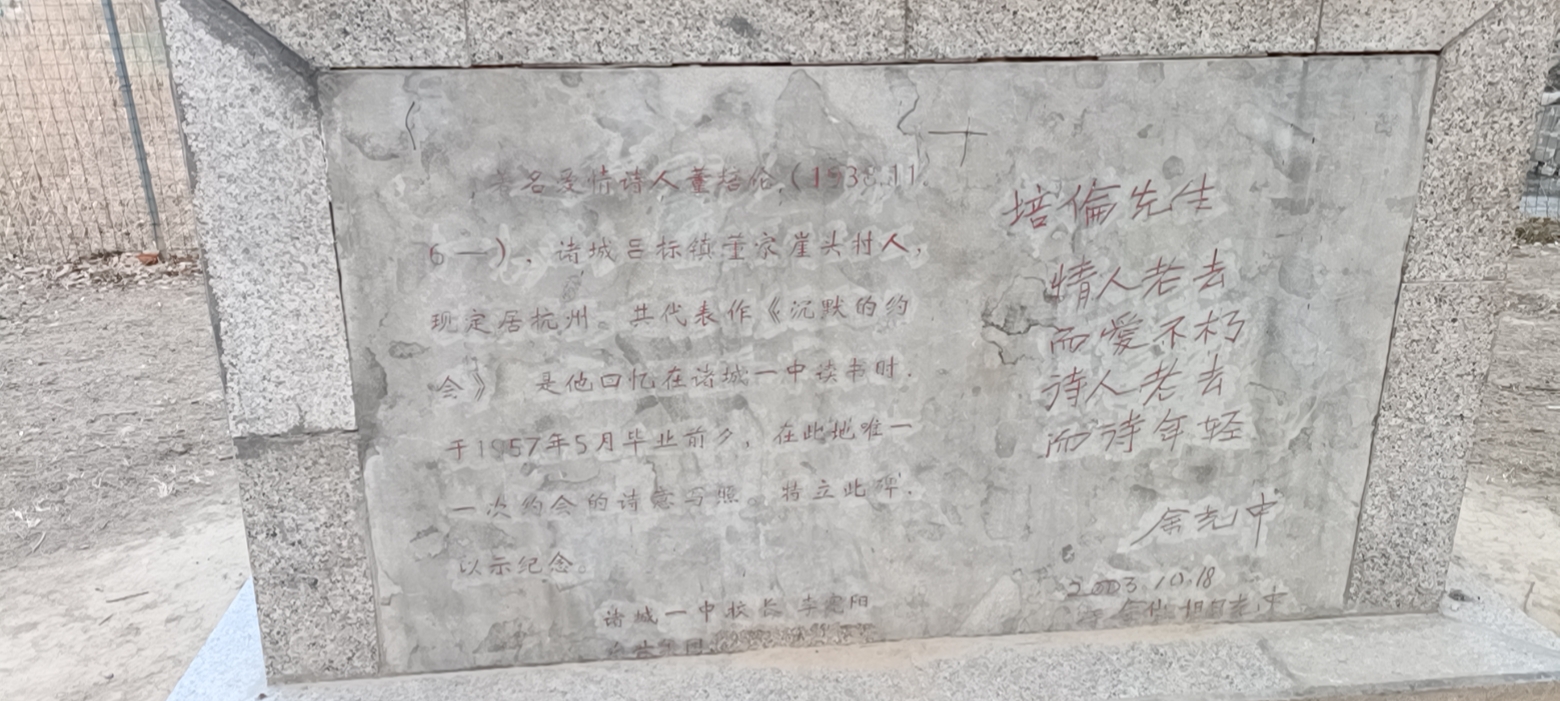 著名爱情诗人董培伦（1938.11.
6—），诸城吕标镇董家崖头村人，
现定居杭州。其代表作《沉默的约
会》 是他回忆在诸城一中读书时.
于1957年5月毕业前夕，在此地唯一
一次约会的诗意写照。特立此碑.
以示纪念。
诸城一中校长
培倫先生
情人老去
而愛不朽
诗人老去
而诗年轻
余光中
2003.10.18